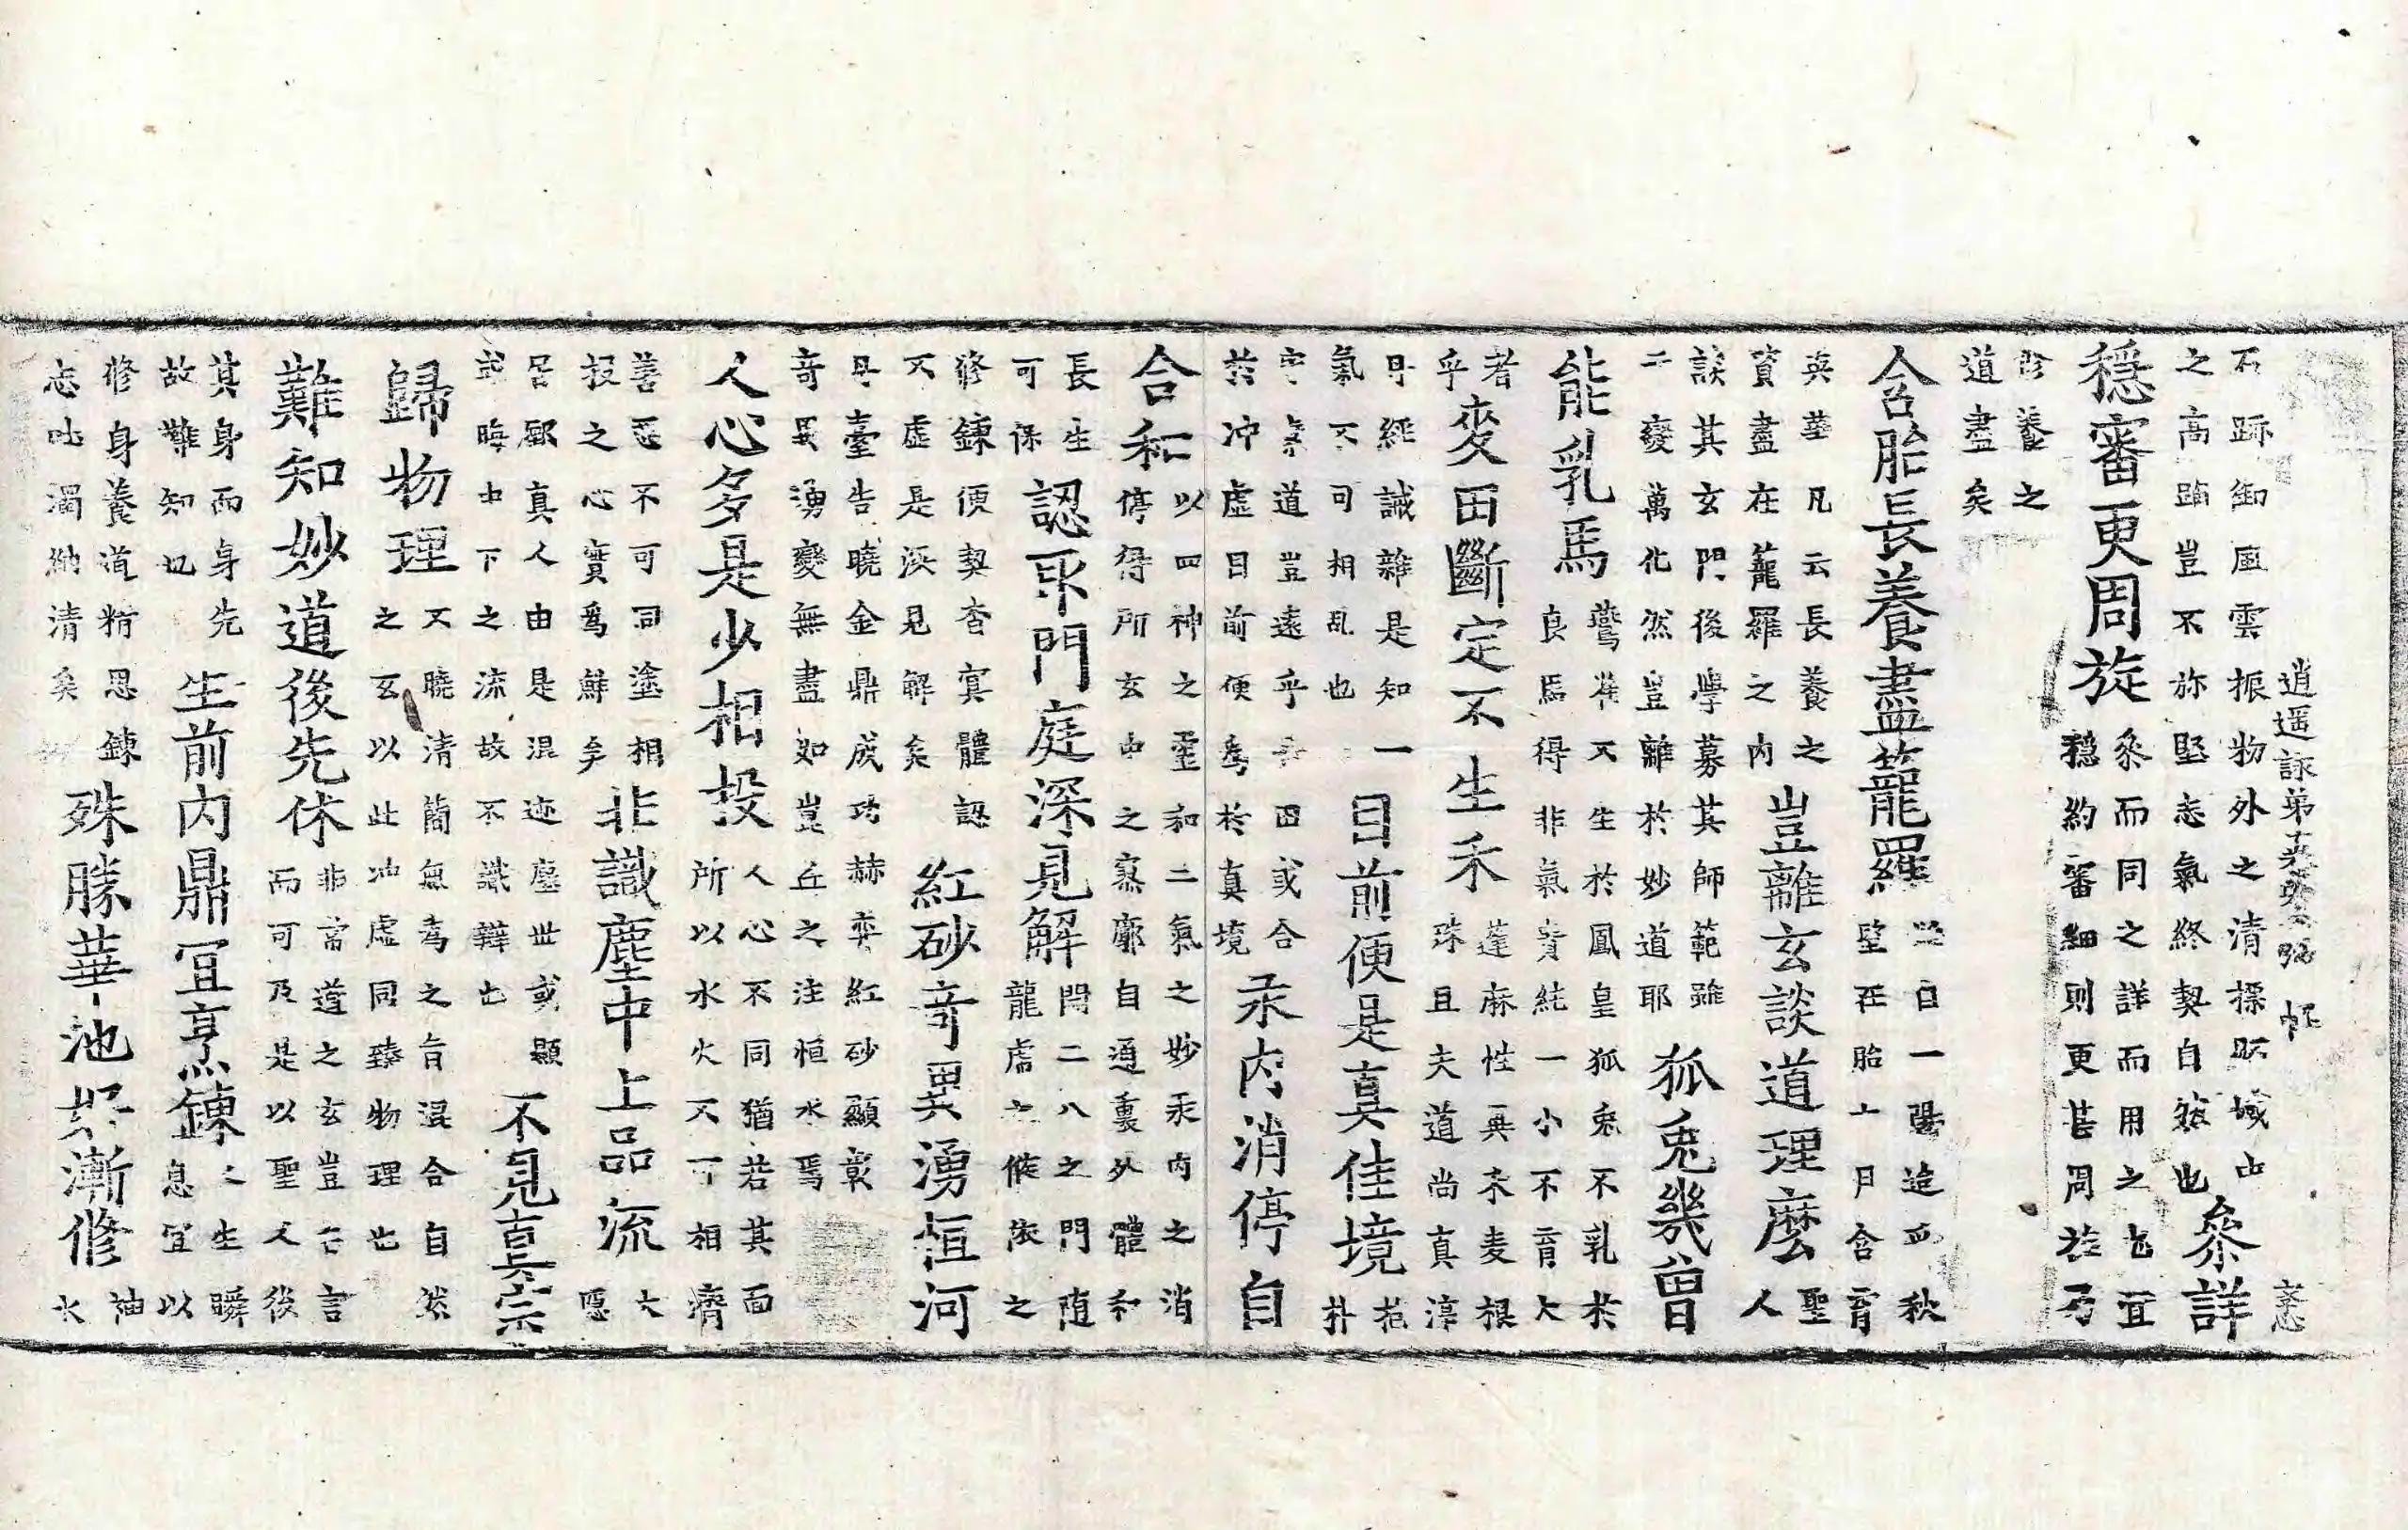 逍遥詠弟
石跡御風雲振物外之清標
之高蹈豈不弥堅志氣終契自然也
叅詳
穩審更周旋
叅而同之詳而用之也宜
穩約審細則更甚周旋乃
養之
道盡矣
含胎長養盡籠羅
聖在胎十月含育
英華凡云長養之聖
資盡在籠羅之内人
豈離玄談道理麽
談其玄門後學募其師範雖
千變萬化然豈離於妙道耶
狐兎幾曾
能乳馬
鸞雀不生於鳳皇狐兎不乳於
良馬得非氣貴純一小不育大
者
乎
麥田斷定不生禾
蓬麻性異禾麦根
殊且夫道尚真淳
丹經誡雜是知一
氣不可相乱也
目前便是真佳境
道豈遠乎
於冲虚目前便爲於真境
汞内消停自
合和
以四神之靈和二氣之妙汞内之消
停得所玄中之寥廓自通裏外體和
長生
可保
認取門庭深見解
開二八之門随
龍虎之候依之
修鍊便契杳冥體認
不虚是深見解矣
紅砂竒異湧恒河
丹臺告曉金鼎成功赫奕紅砂顯彰
竒異湧變無盡如豈丘之注恒水焉
人心多是少相投
人心不同猶若其面
所以水火不可相濟
善惡不可同塗相
投之心實爲鮮矣
非識塵中上品流
大
隱
居鄽真人由是混迹塵世或顯
或晦中下之流故不識辯也
不見真宗
歸物理
不曉清簡無爲之旨混合自然
之玄以此冲虚同臻物理也
難知妙道後先休
非言道之玄豈亡言
而可及是以聖人後
其身而身先
故難知也
生前内鼎冝烹鍊
生瞬
息冝以
修身養道精思鍊
志吐濁納清矣
殊勝華池好漸修
神
水